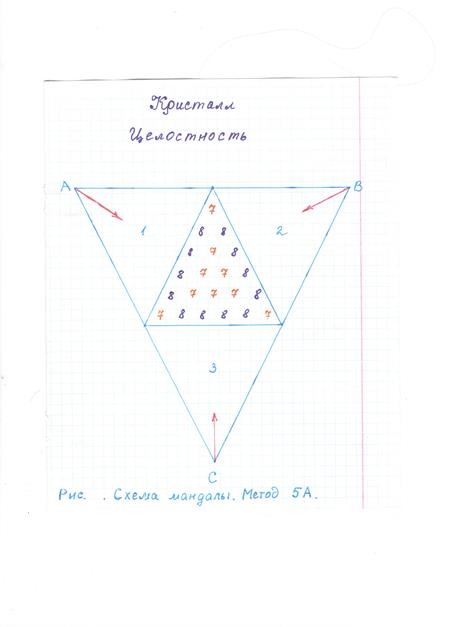 Кристалл
Целостность
А В
7
1 8 8 2
8 7 8
8 7 7 8
8 7 7 7 8
7 8 8 8 8 7
3
С
Рис. . Схема мандалы. Метод 5А.